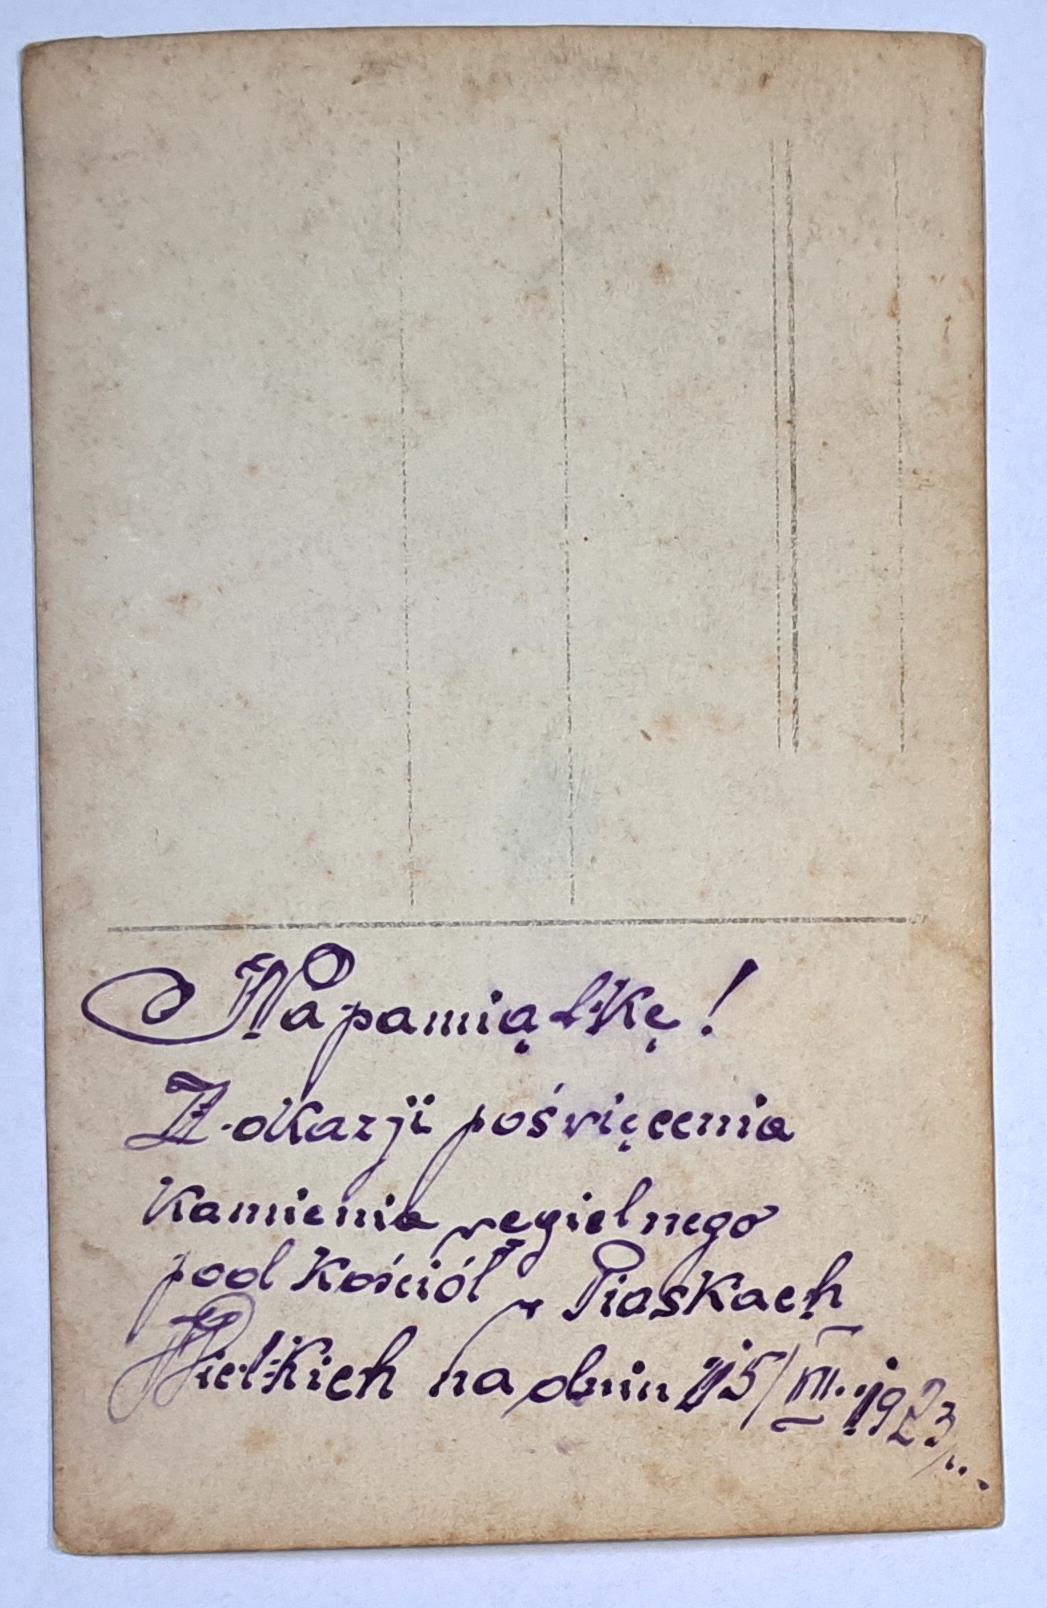 Na pamiątkę!
Z okazji poświęcenia
kamienia węgielnego
pod kościół w Piaskach
Wielkich na dniu 15/VII. 1923